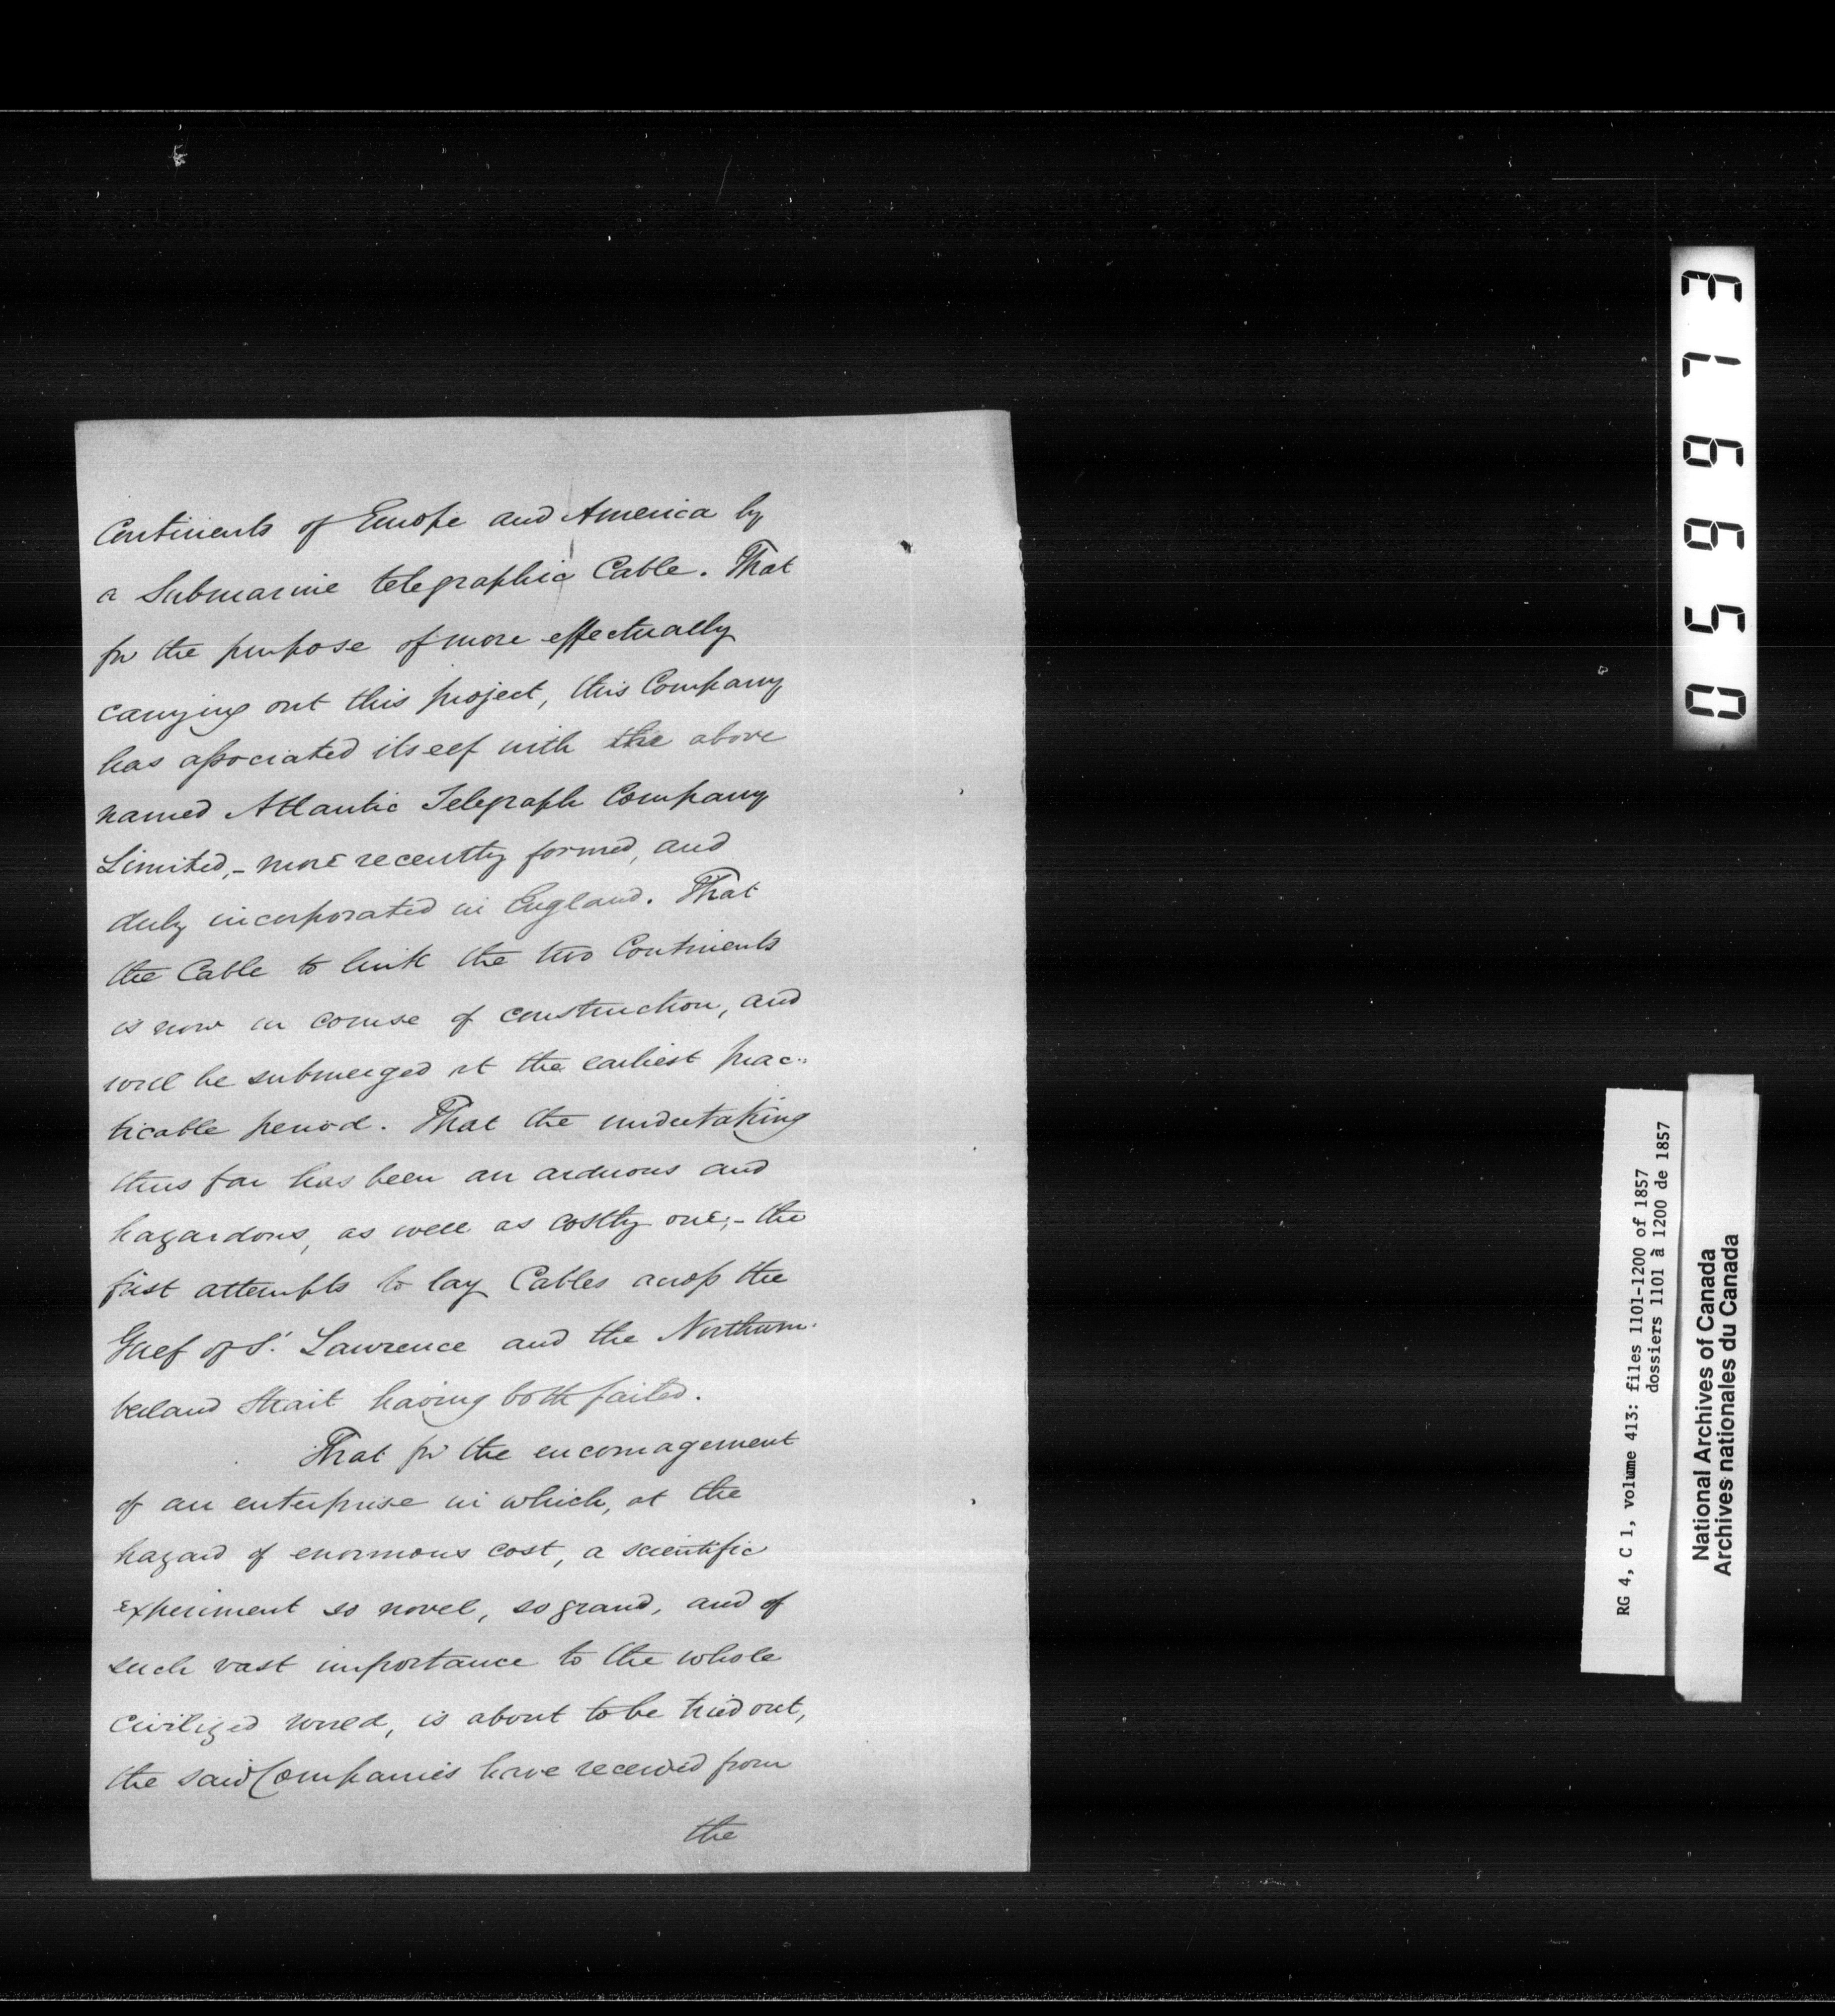 Continents of Europe and America by
a Submarine telegraphic Cable. That
for the purpose of more effectually
carrying out this project, this Company
has associated itself with the above
named Atlantic Telegraph Company
Limited,- more recently formed, and
duly incorporated in England. That
the Cable to link the two Continents
is now in course of construction, and
will be submerged at the earliest prac-
ticable period. That the undertaking
thus far has been an arduous and
hazardous, as well as costly one;- the
first attempts to lay Cables across the
Gulf of St. Lawrence and the Northum-
berland Strait having both failed.
That for the encouragement
of an enterprise in which, at the
hazard of enormous cost, a scientific
experiment so novel, so grand, and of
such vast importance to the whole
civilized world, is about to be tried out,
the said Companies have received from
the
056613
RG 4, C 1, volume 413: files 1101-1200 of 1857
dossiers 1101 à 1200 de 1857
National Archives of Canada
Archives nationales du Canada